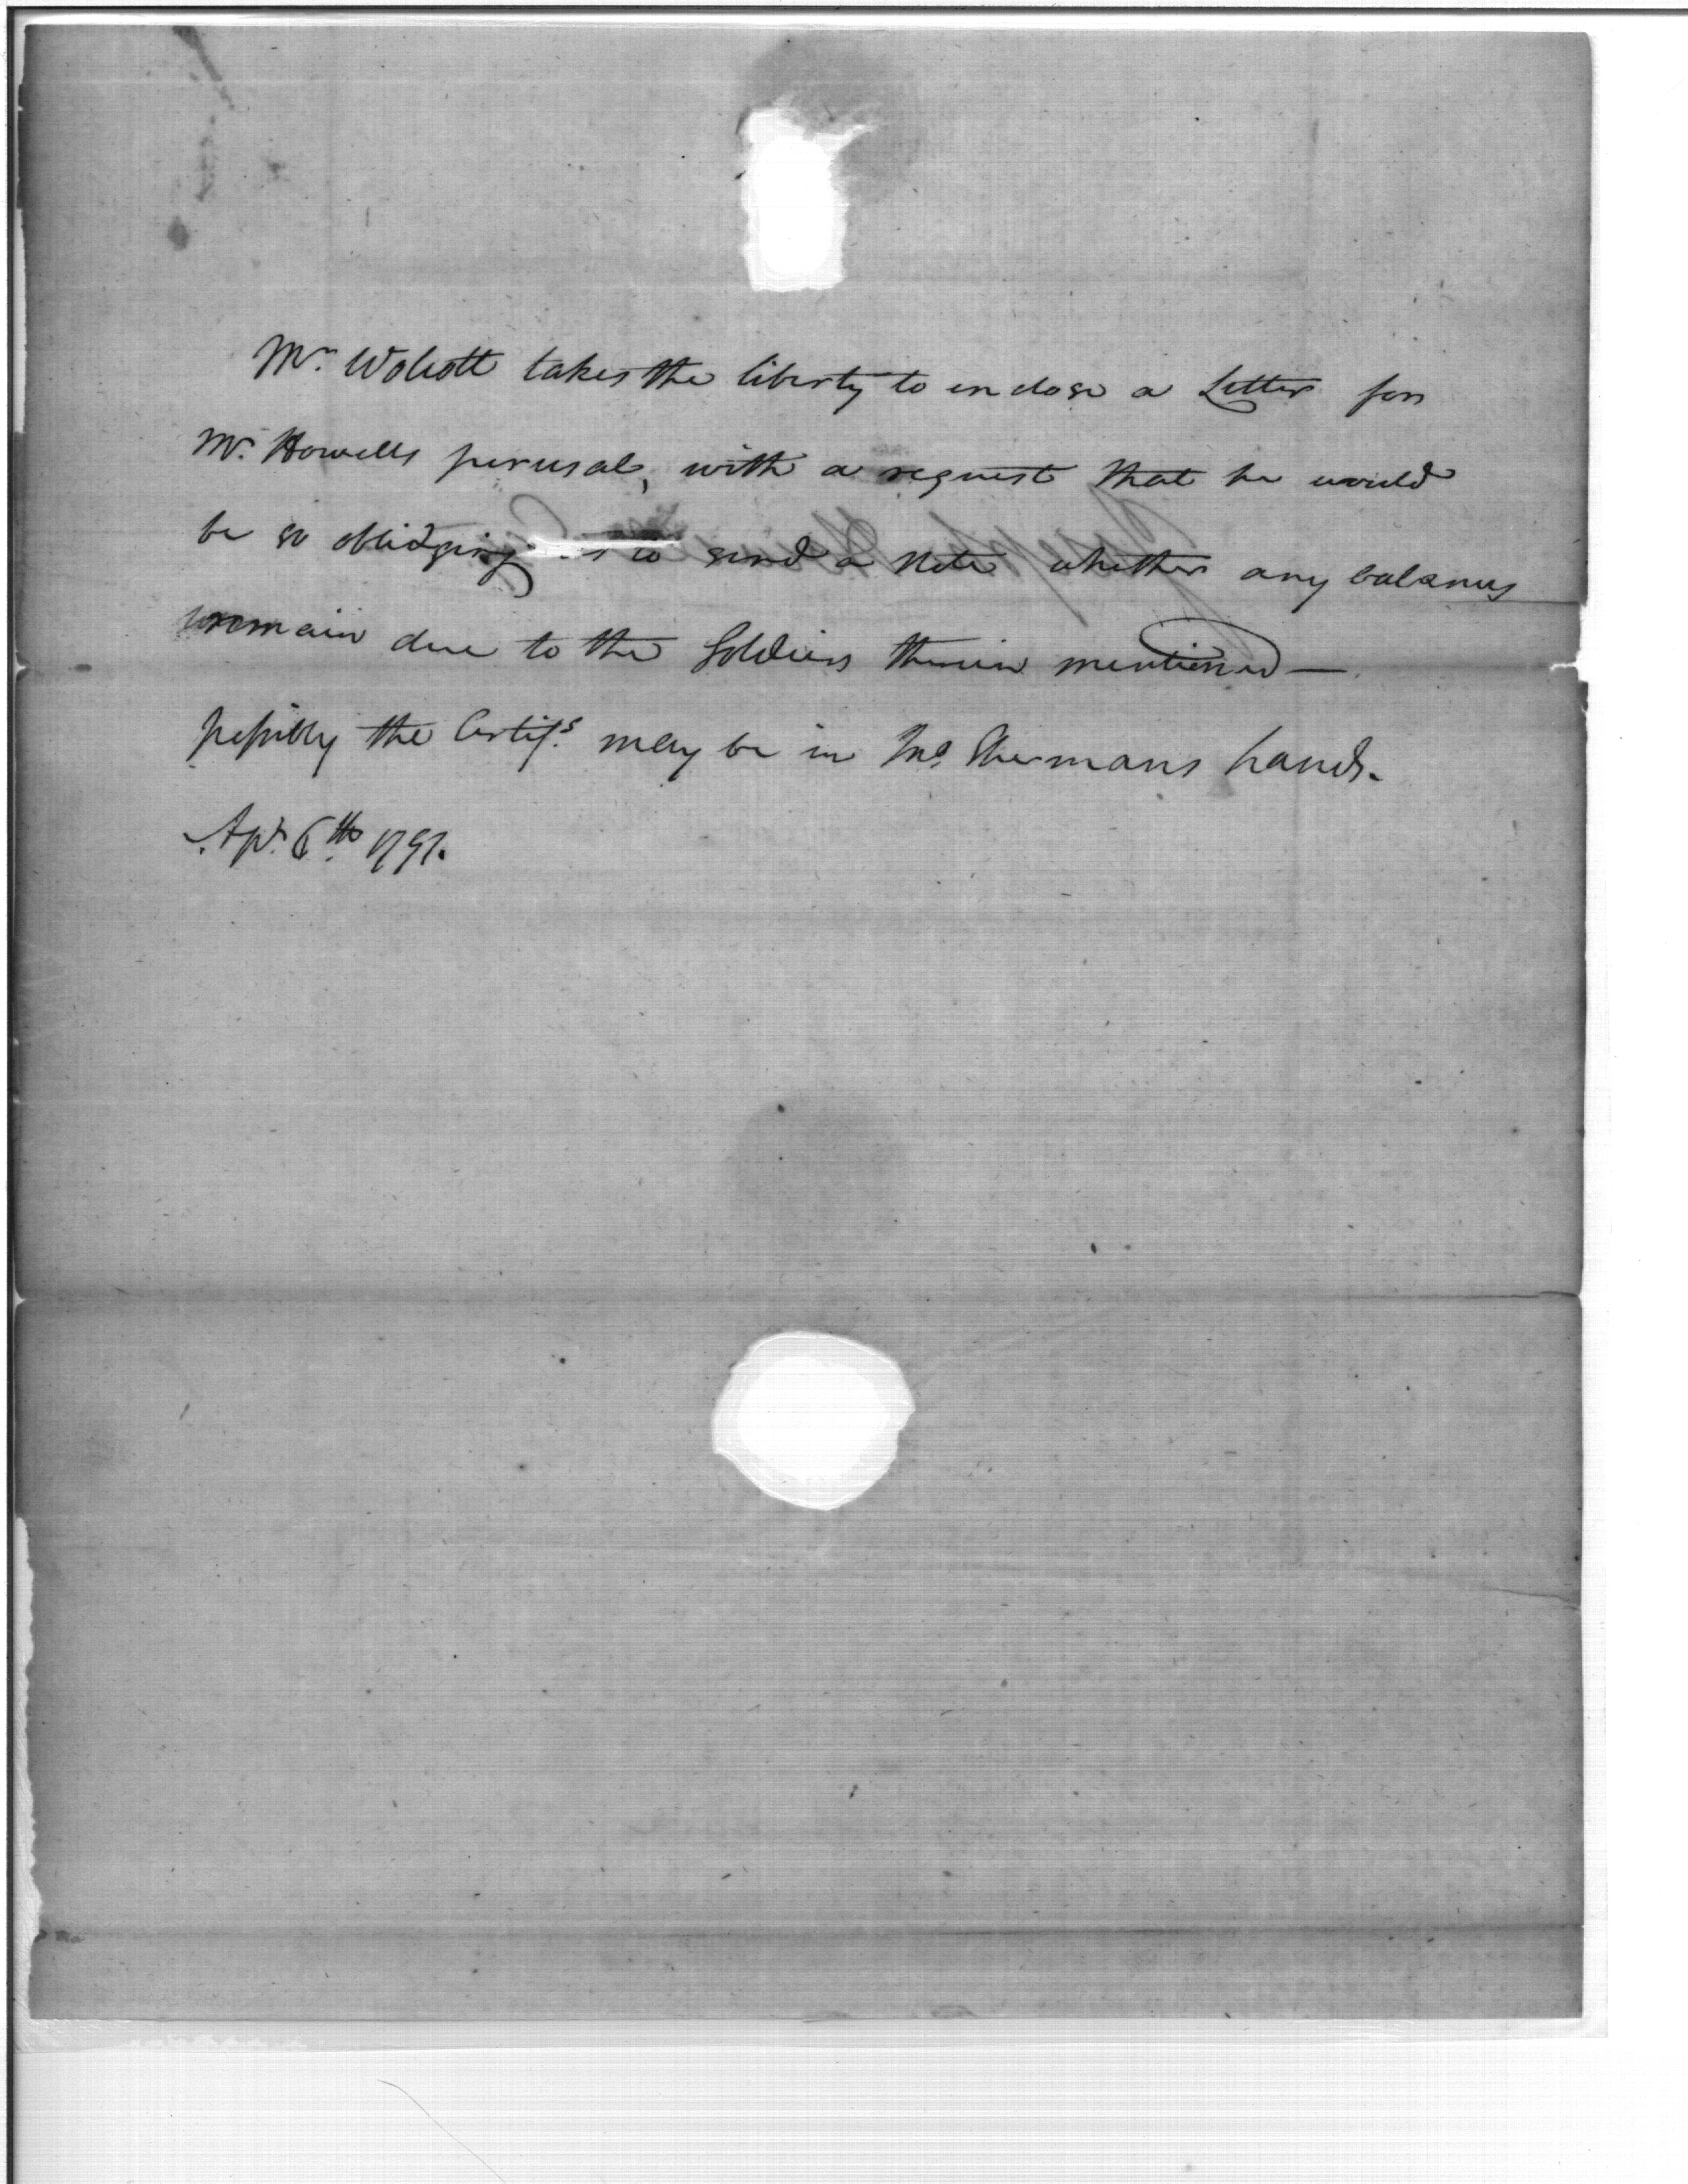 Mr. Wolcott takes the liberty to enclose a Letter for
Mr. Howells perusal, with a request that he would
be so oblidging as to send a Note whether any balances
remain due to the Soldiers therein mentioned —
possibly the Certifs. may be in Mr. Shermans hands.
Apl. 6th 1791.